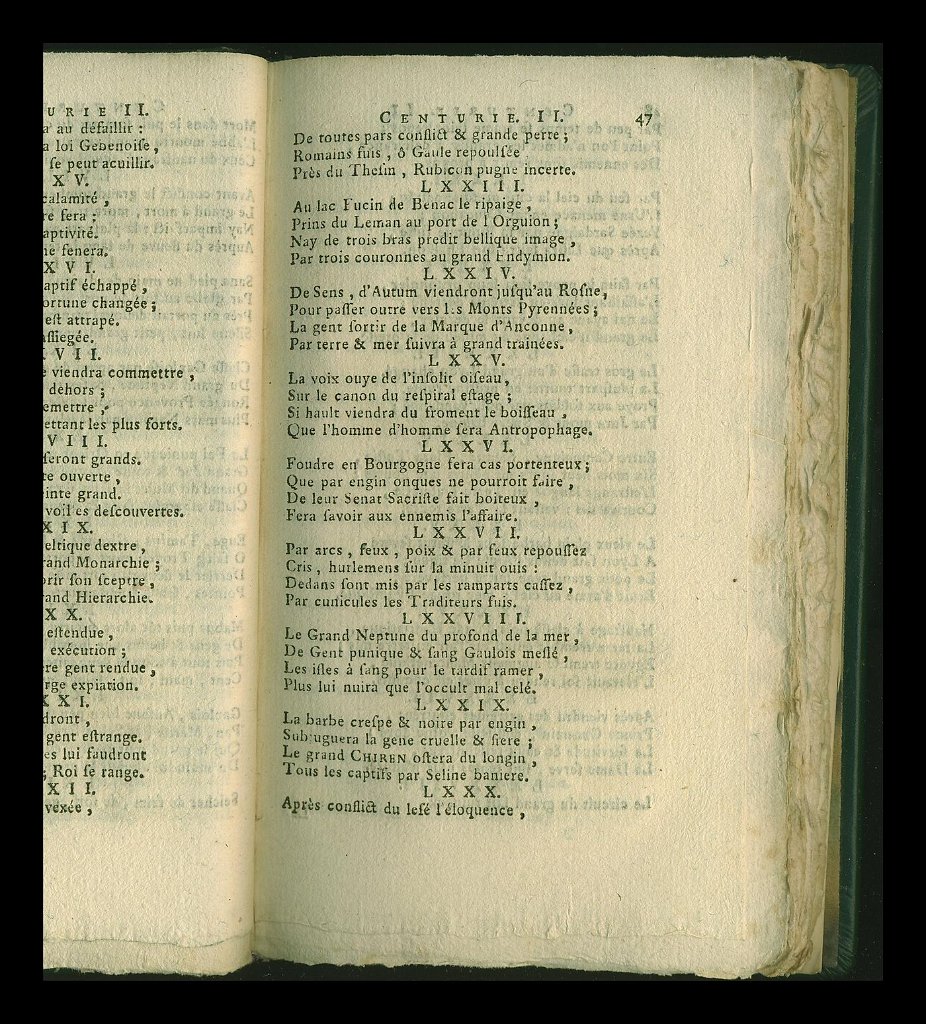 URIE II.
a au défaillir :
a loi Gebenoiſe,
ſe peut acuillir.
X V.
calamité,
re ſera ;
aptivité.
ne fenera.
X V I.
aptif échappé,
ortune changée ;
eſt attrapé.
aſſiegée.
V I I.
e viendra commettre,
dehors ;
emettre ;
ettant les plus forts.
V I I I.
ſeront grands.
te ouverte,
inte grand.
voiles deſcouvertes.
X I X.
eltique dextre,
rand Monarchie ;
orir ſon ſceptre,
rand Hierarchie.
X X.
eſtendue,
exécution ;
re gent rendue,
rge expiation.
X X I.
dront,
gent eſtrange.
es lui faudront
; Roi ſe range.
X I I.
vexée,
CENTURIE. II. 47
De toutes pars conflict & grande perte ;
Romains fuis, ô Gaule repoulſée
Près du Theſin, Rubicon pugne incerte.
L X X I I I.
Au lac Fucin de Benac le ripaige,
Prins du Leman au port de l'Orguion ;
Nay de trois bras predit bellique image,
Par trois couronnes au grand Endymion.
L X X I V.
De Sens, d'Autum viendront juſqu'au Roſne,
Pour paſſer outre vers les Monts Pyrennées ;
La gent ſortir de la Marque d'Anconne,
Par terre & mer ſuivra à grand trainées.
L X X V.
La voix ouye de l'inſolit oiſeau,
Sur le canon du reſpiral eſtage ;
Si hault viendra du froment le boiſſeau,
Que l'homme d'homme ſera Antropophage.
L X X V I.
Foudre en Bourgogne fera cas portenteux ;
Que par engin onques ne pourroit faire,
De leur Senat Sacriſte fait boiteux,
Fera ſavoir aux ennemis l'affaire.
L X X V I I.
Par arcs, feux, poix & par feux repouſſez
Cris, hurlemens ſur la minuit ouis :
Dedans ſont mis par les ramparts caſſez,
Par cunicules les Traditeurs fuis.
L X X V I I I.
Le Grand Neptune du profond de la mer,
De Gent punique & ſang Gaulois meſlé,
Les iſles à ſang pour le tardif ramer,
Plus lui nuira que l'occult mal celé.
L X X I X.
La barbe creſpe & noire par engin,
Subjuguera la gene cruelle & fiere ;
Le grand CHIREN oſtera du longin,
Tous les captifs par Seline baniere.
L X X X.
Après conflict du leſé l'éloquence,